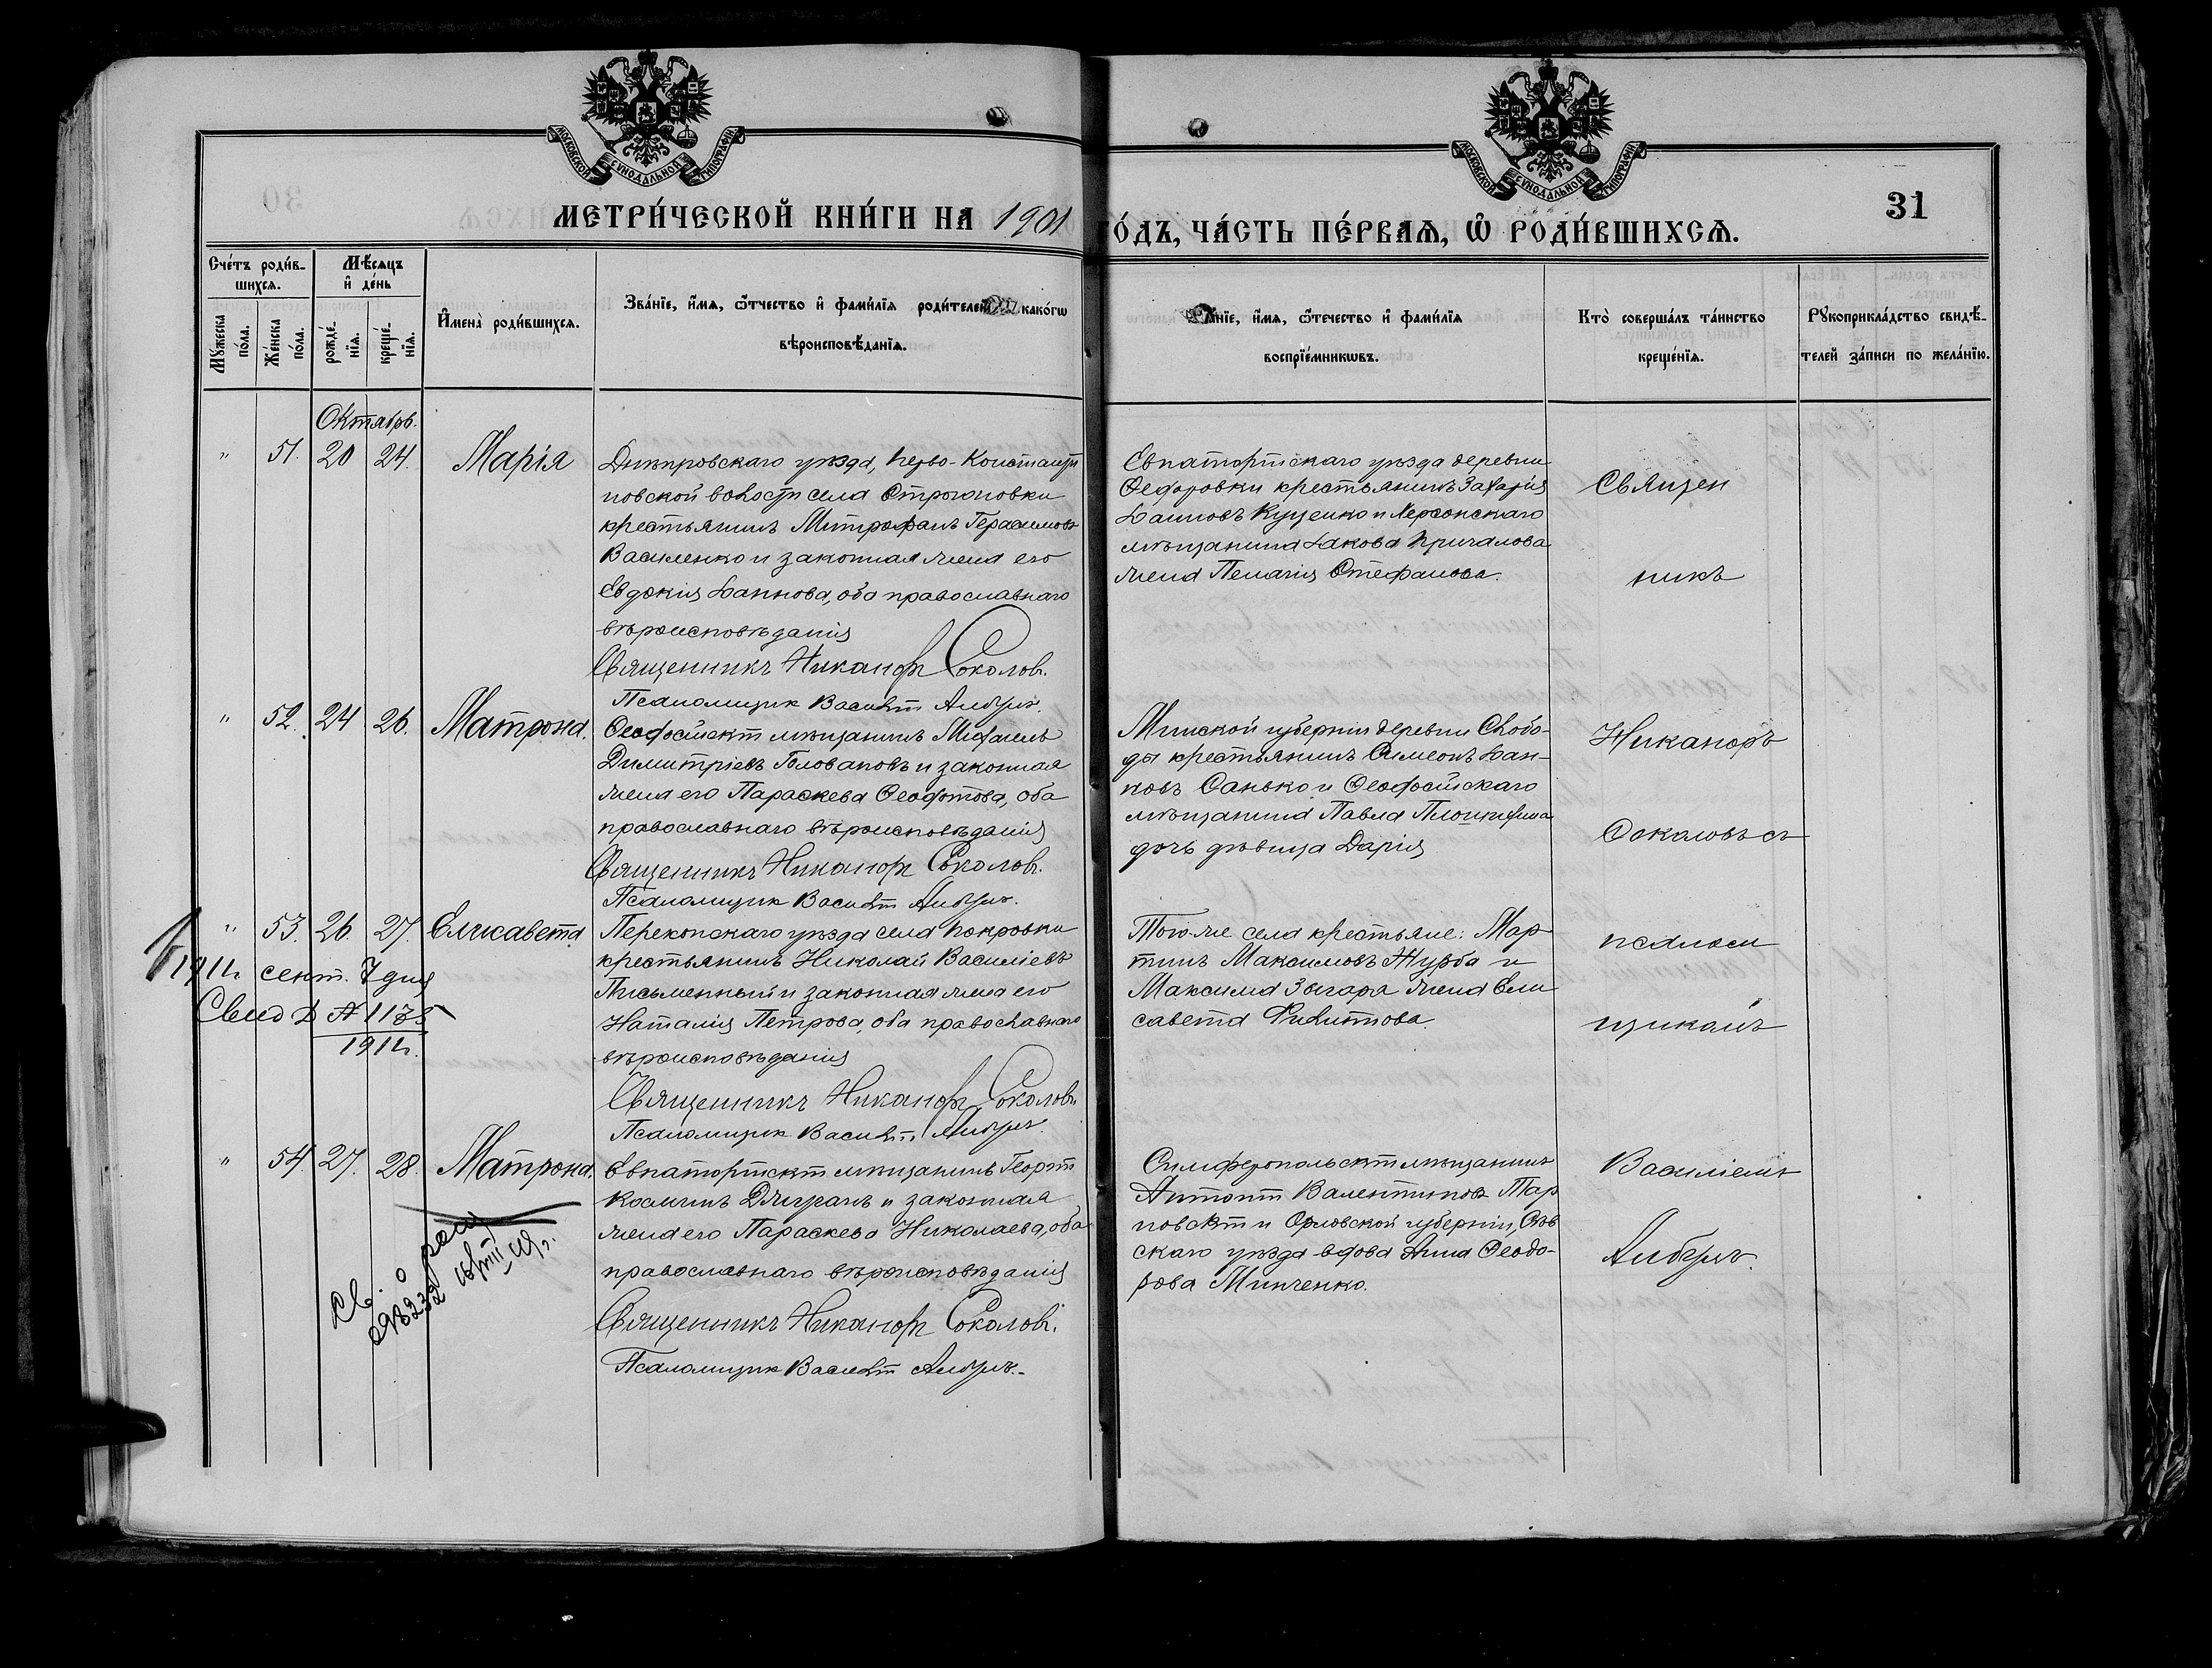 МОСКОВСКОЙ СѴНОДАЛЬНОЙ ТИПОГРАФІИ
МОСКОВСКОЙ СѴНОДАЛЬНОЙ ТИПОГРАФІИ
31
МЕТРИ́ЧЕСКОЙ КНИ́ГИ НА 1901
ГО́ДЪ, ЧА́СТЬ ПЕ́РВАѦ, Ѿ РОДИ́ВШИХСѦ.
Сче́тъ роди́в-
шихсѧ.
Мѣ́сѧцъ
и҆ де́нь
Мꙋ́жеска
по́ла.
Же́нска
по́ла.
рожде́-
нїѧ.
креще́-
нїѧ.
И҆мена̀ роди́вшихсѧ.
Зва́нїе, и҆́мѧ, ѻ҆́тчество и҆ фами́лїѧ роди́телей какóгѡ
вѣроисповѣ́данїѧ.
а́нїе, и҆́мѧ, ѻ҆́течество и҆ фами́лїѧ
воспрїе́мникѡвъ.
Кто̀ соверша́лъ та́инство
креще́нїѧ.
Рꙋкоприкла́дство свидѣ́-
телей за́писи по жела́нїю.
Октябрь.
" 51. 20 24. Марія
Днѣпровскаго уѣзда, Перво-Константи
новской волости села Строгановки
крестьянинъ Митрофанъ Герасимовъ
Василенко и законная жена его
Евдокия Іаннова, оба православнаго
вѣроисповѣданія
Священникъ Никаноръ Соколовъ.
Псаломщик Василій
Евпаторійскаго уѣзда деревни
Феодоровки крестьянинъ Захарія
Іанновъ Куценко и Херсонскаго
мѣщанина Іакова Причалова
жена Пелагія Стефанова.
Священ
никъ
" 52. 24 26. Матрона.
Феодосійскій мѣщанинъ Михаилъ
Димитріевъ Головановъ и законная
жена его Параскева Феодотова, оба
православнаго вѣроисповѣданія
Священникъ Никаноръ Соколовъ.
Псаломщик Василій
Минской губерніи деревни Слобо-
ды крестьянинъ Симеонъ Іан-
новъ Санько и Феодосійскаго
мѣщанина Павла
дочь дѣвица Дарія
Никаноръ
Соколовъ съ
" 53. 26. 27. Елисавета
1911г. сент. 7 дня
Свид
1911г.
Перекопскаго уѣзда села Покровки
крестьянинъ Николай Василіевъ
Письменный и законная жена его
Наталія Петрова, оба православнаго
вѣроисповѣданія
Священникъ Никаноръ Соколовъ
Псаломщик Василій
Того-же села крестьяне: Мар
тинъ Максимовъ Журба и
Максима Зыгаря жена Ели
савета Филиппова.
псаломщ
щикомъ
" 54. 27. 28. Матрона.
Св. о рожд
Евпаторійскій мѣщанинъ Георгій
Косминъ и законная
жена его Параскева Николаева, оба
православнаго вѣроисповѣданія
Священникъ Никаноръ Соколовъ.
Псаломщик Василій
Симферопольскій мѣщанинъ
Антоній Валентиновъ Тар
новскій и Орловской губерніи, Сѣв
скаго уѣзда вдова Анна Феодо-
рова Минченко.
Василіемъ